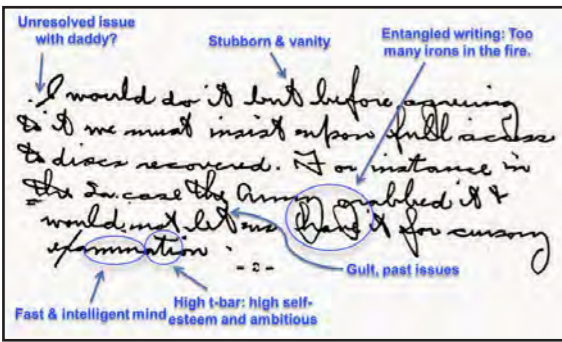 Unresolved issue
with daddy?
Stubborn & vanity
Entangled writing: Too
many irons in the fire.
I would do it but before agreeing
to it we must insist upon full access
to discs recovered. For instance in
the case the Army grabbed it &
would not let us have it for cursory
examination.
Gult, past issues
Fast & intelligent mind
High t-bar: high self-
esteem and ambitious